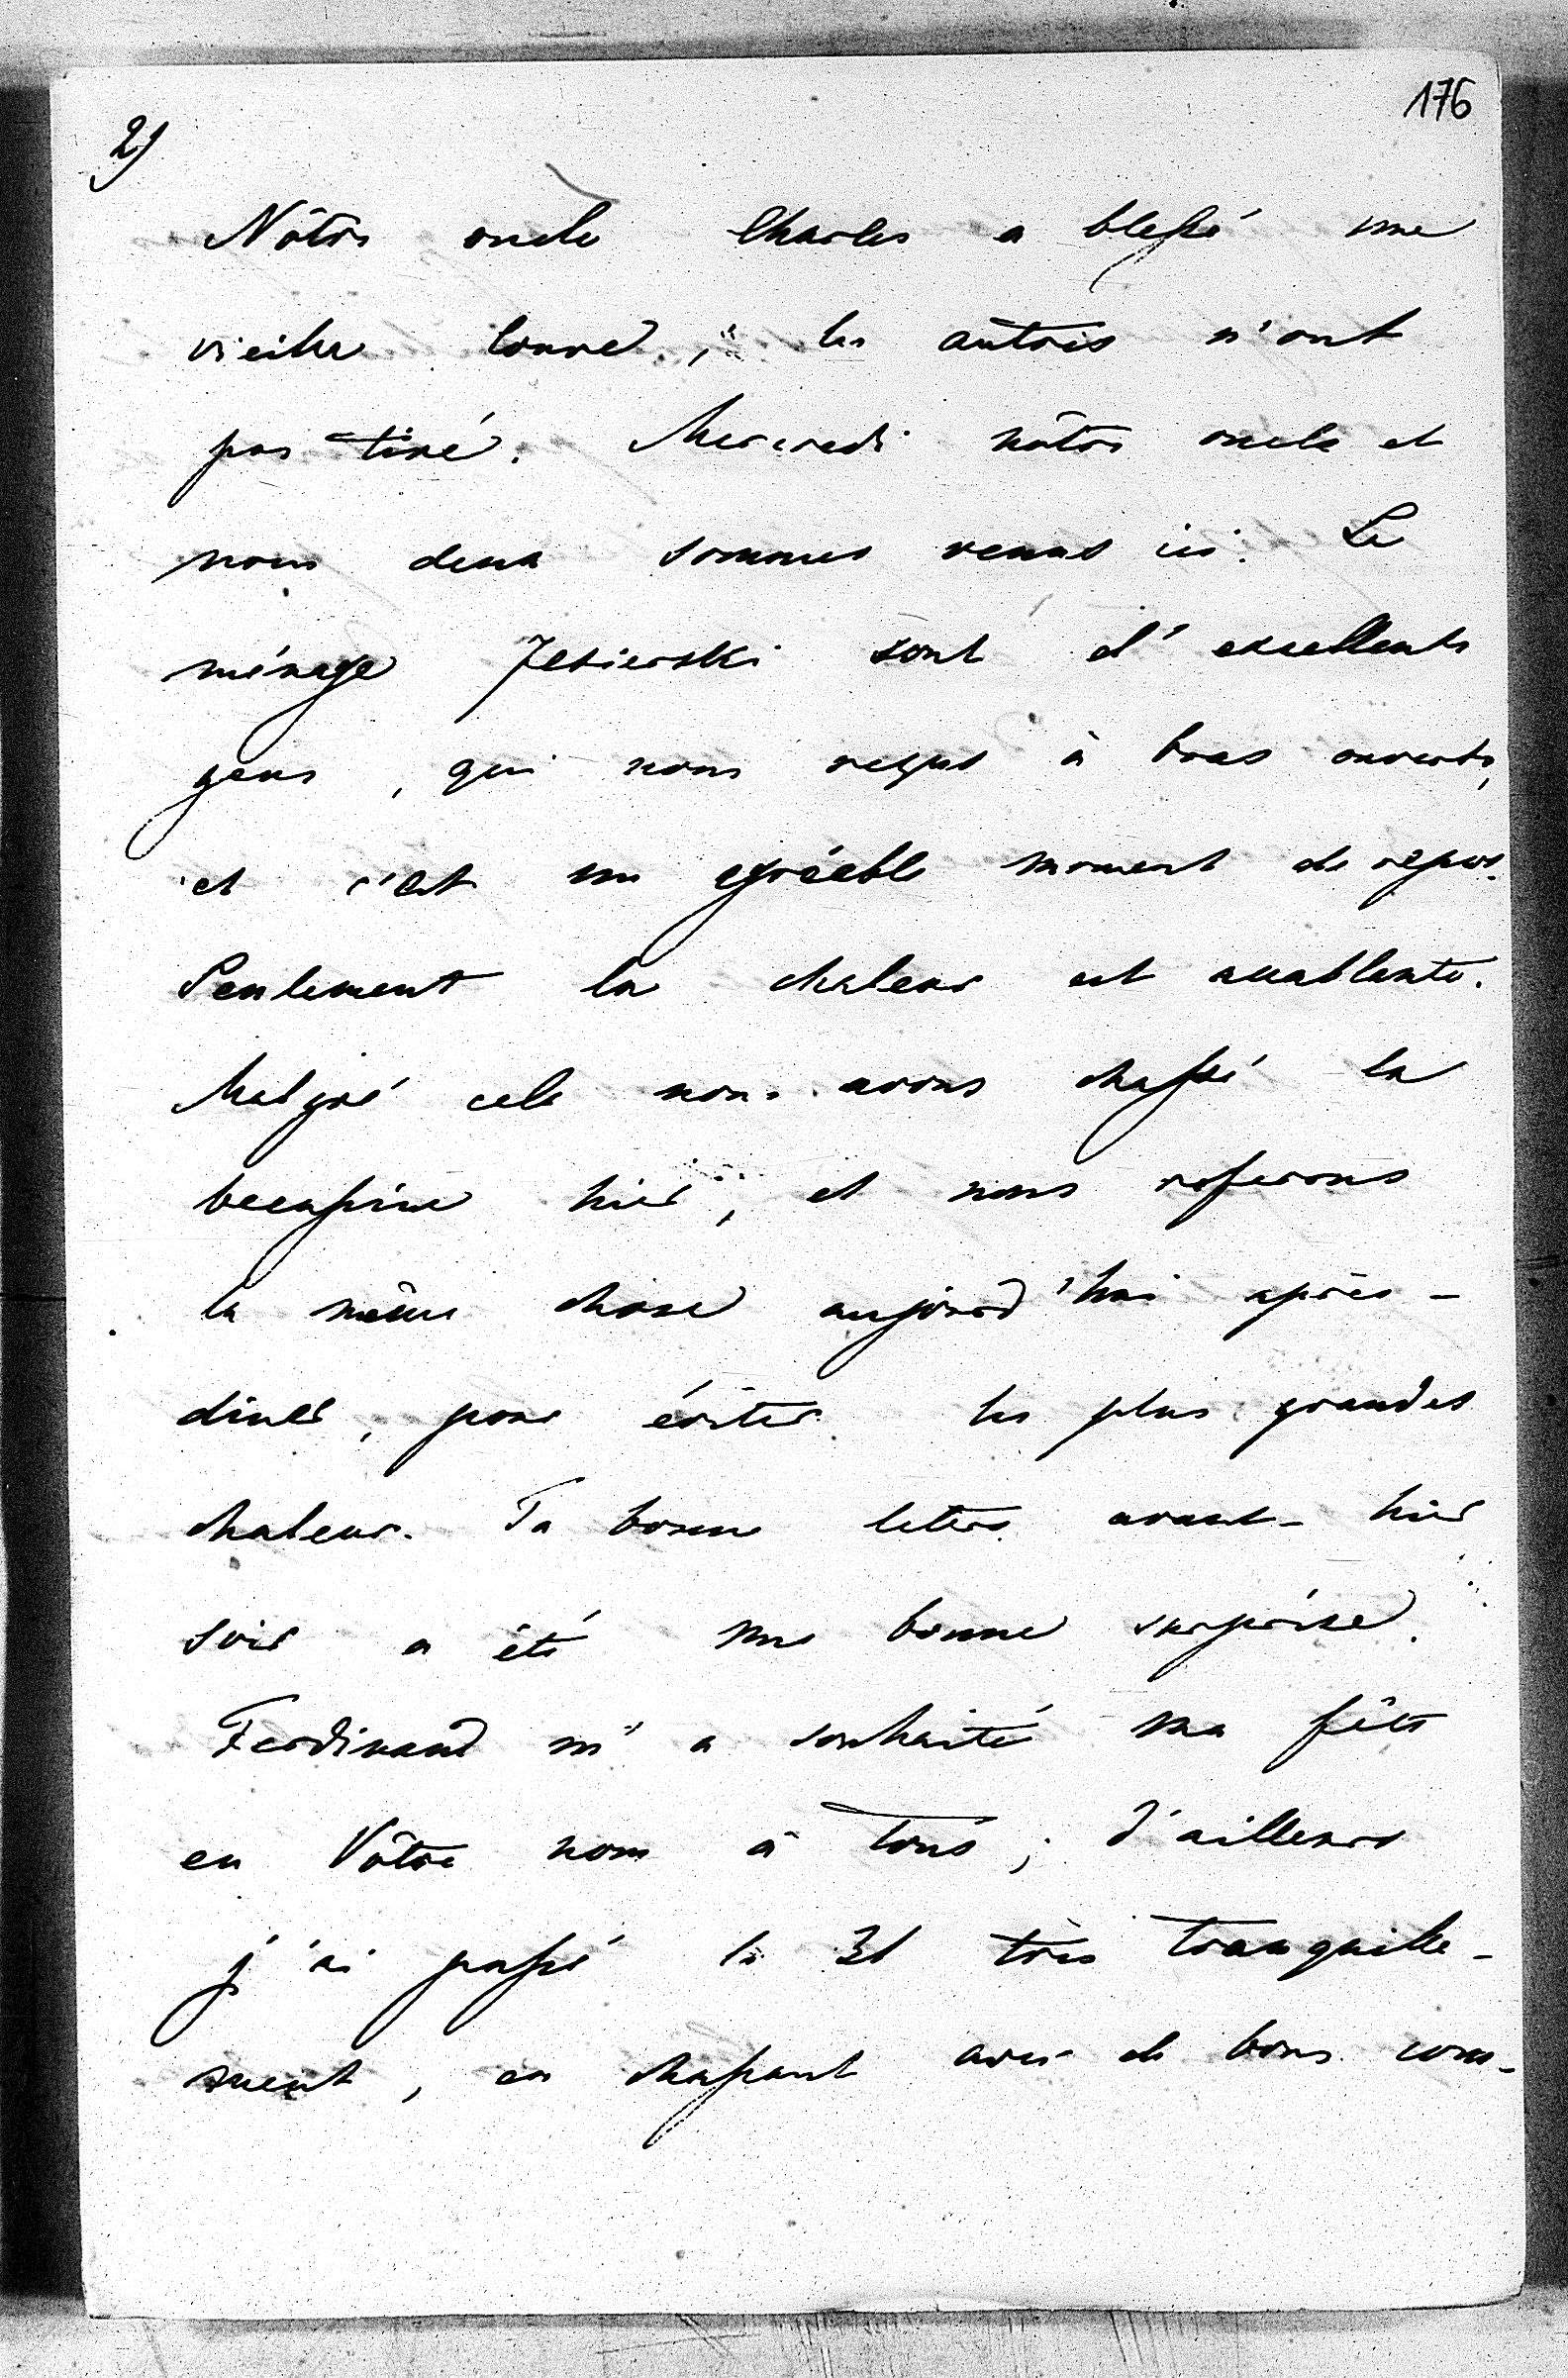 176
2)
Nôtre oncle Charles a blessé une
vieille louve, les autres n'ont
pas tiré. Mercredi nôtre oncle et
nous deux sommes venus ici. Le
ménage Jezierski sont d'excellents
gens, qui nous reçus à bras ouverts,
et c'est un agréable moment de repos.
Seulement la chaleur est accablante.
Malgré cela nous avons chassé la
becassine hier, et nous referons
la même chose aujourd'hui après-
diner, pour éviter les plus grandes
chaleur. Ta bonne lettre avant-hier
soir a été une bonne surprise.
Ferdinand m'a souhaité ma fête
en Vôtre nom à tous; d'ailleurs
j'ai passé le 31 très tranquille-
ment, en chassant avec de bons com-